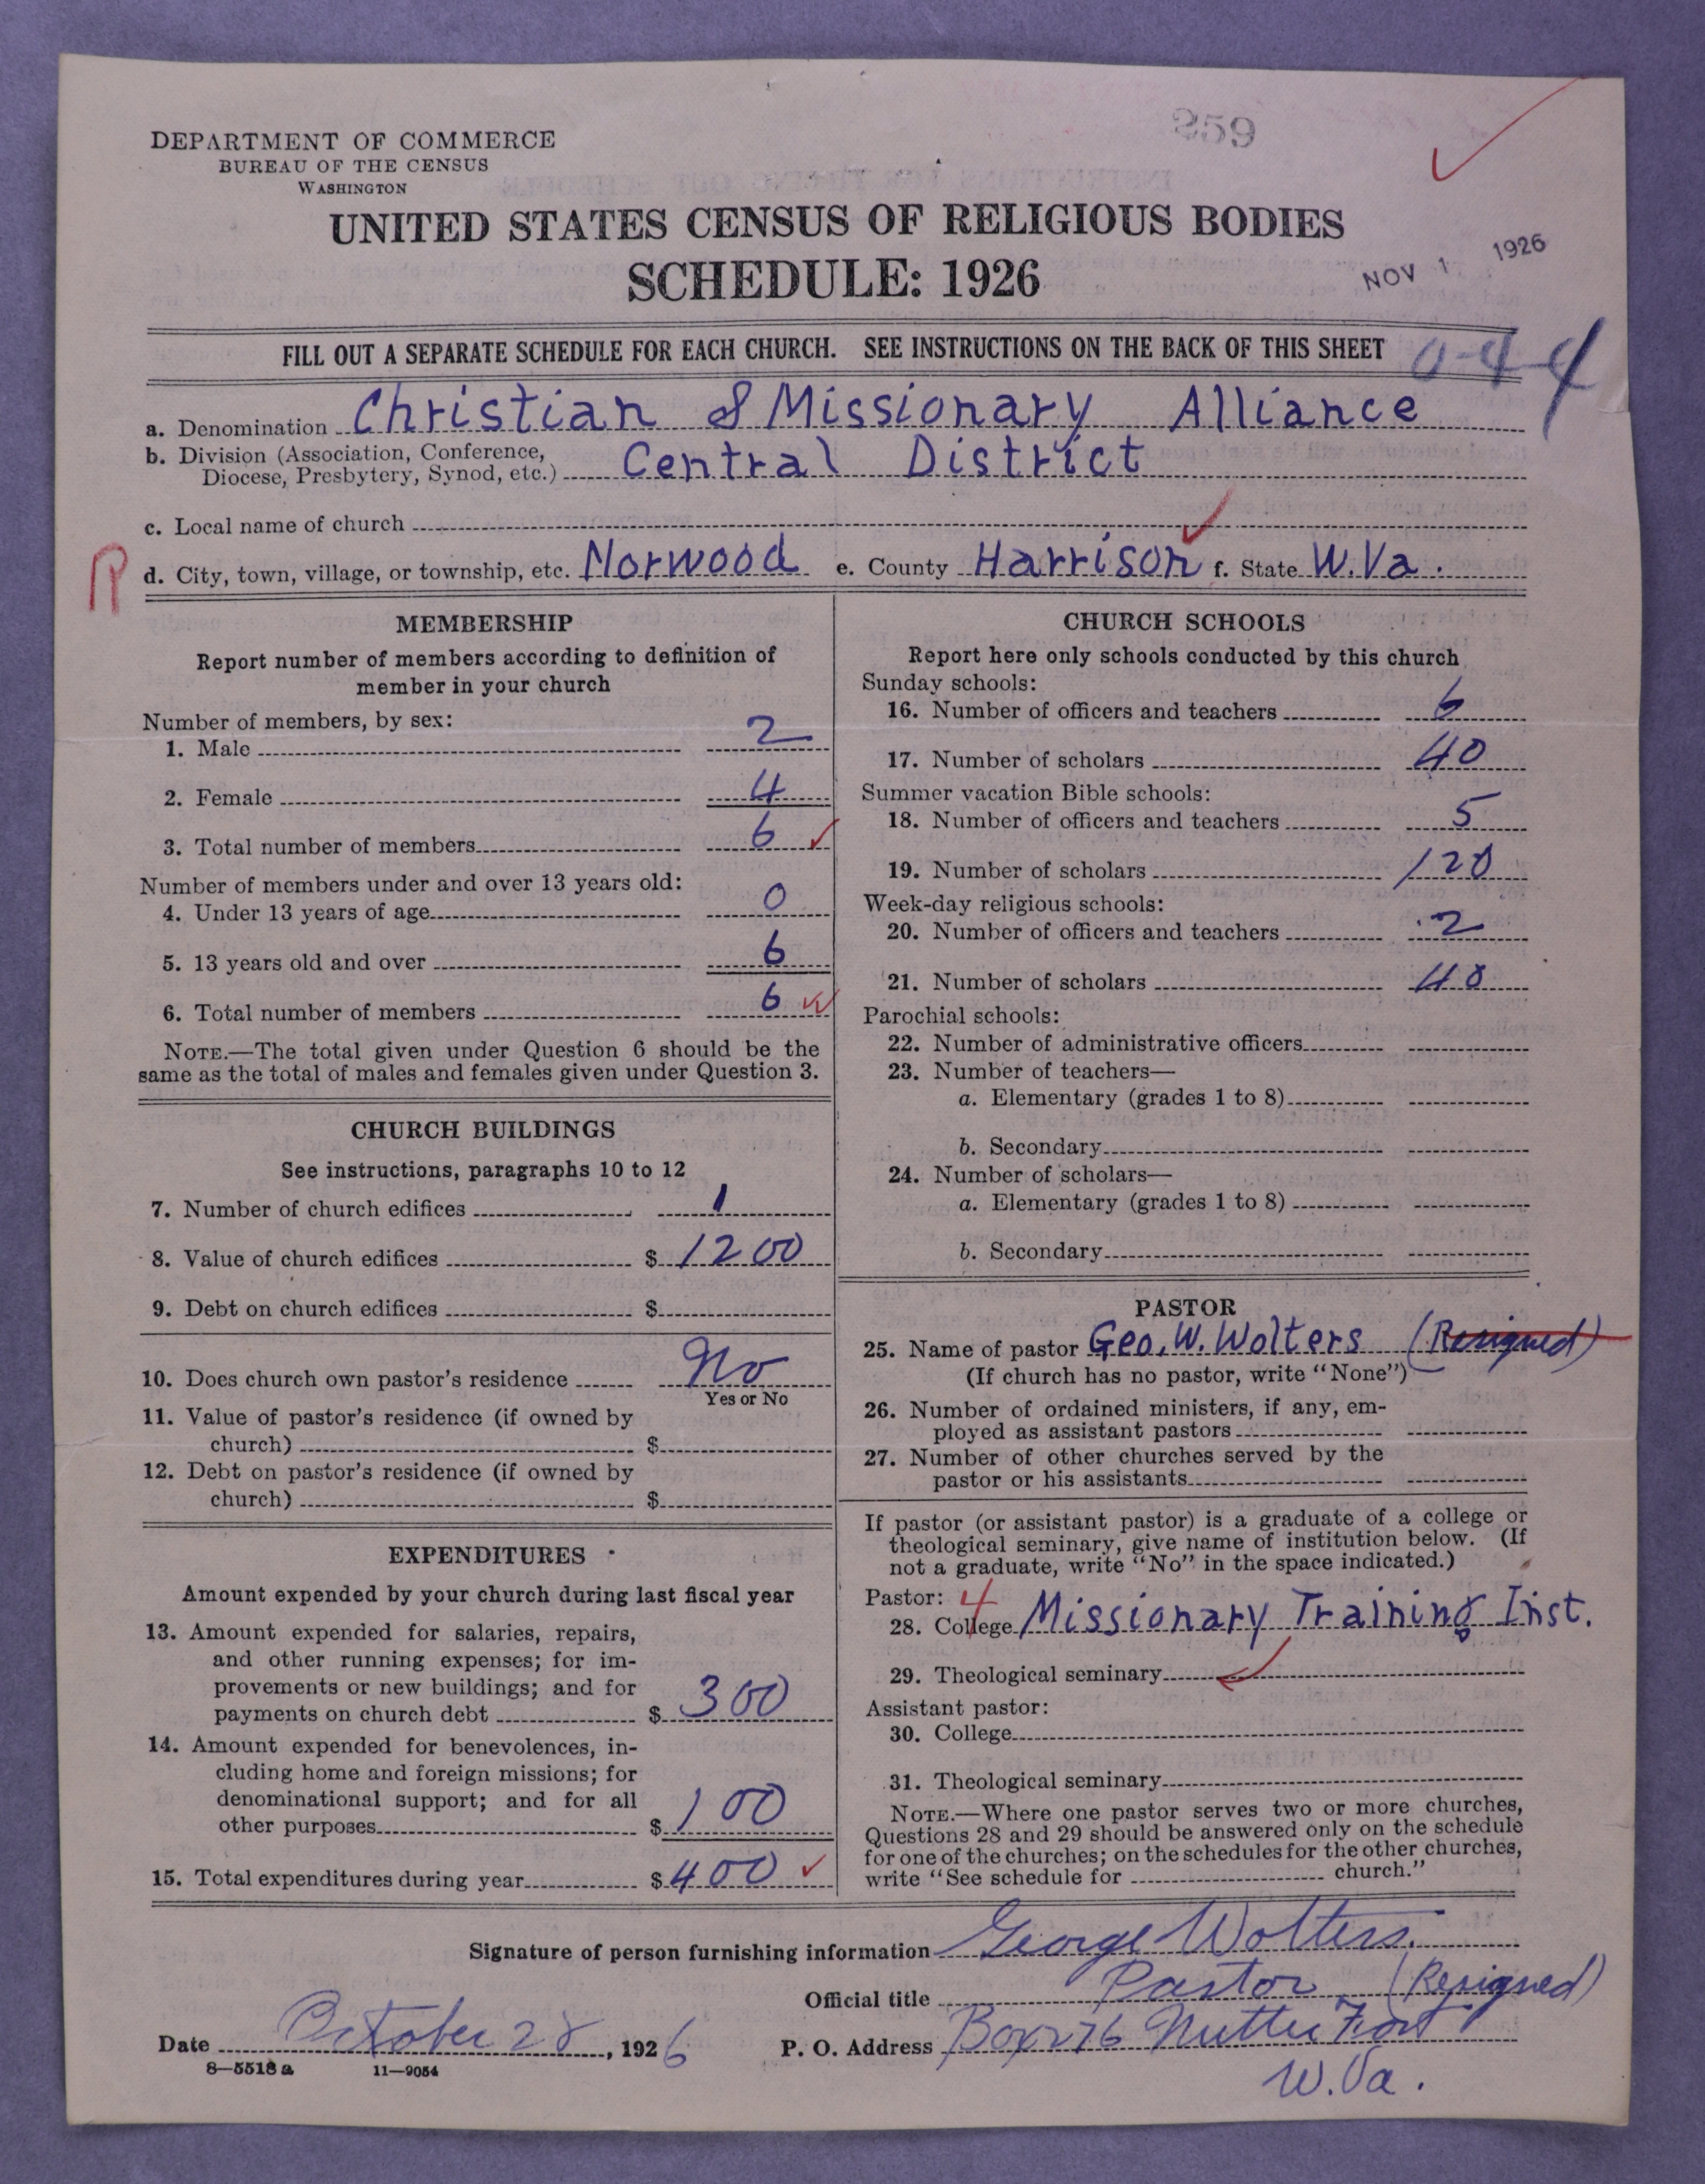 259
DEPARTMENT OF COMMERCE
BUREAU OF THE CENSUS
WASHINGTON
UNITED STATES CENSUS OF RELIGIOUS BODIES
SCHEDULE: 1926
NOV 1 1926
FILL OUT A SEPARATE SCHEDULE FOR EACH CHURCH. SEE INSTRUCTIONS ON THE BACK OF THIS SHEET
0-4-4
a. Denomination Christian & Missionary Alliance
b. Division (Association, Conference,
Diocese, Presbytery, Synod, etc.) Central District
c. Local name of church
R
d. City, town, village, or township, etc. Norwood e. County Harrison f. State W.Va.
MEMBERSHIP
Report number of members according to definition of
member in your church
Number of members, by sex:
1. Male 2
2. Female 4
3. Total number of members 6
Number of members under and over 13 years old:
4. Under 13 years of age 0
5. 13 years old and over 6
6. Total number of members 6
NOTE.—The total given under Question 6 should be the
same as the total of males and females given under Question 3.
CHURCH BUILDINGS
See instructions, paragraphs 10 to 12
7. Number of church edifices 1
8. Value of church edifices $ 1200
9. Debt on church edifices $
10. Does church own pastor's residence No
Yes or No
11. Value of pastor's residence (if owned by
church) $
12. Debt on pastor's residence (if owned by
church) $
EXPENDITURES
Amount expended by your church during last fiscal year
13. Amount expended for salaries, repairs,
and other running expenses; for im-
provements or new buildings; and for
payments on church debt $ 300
14. Amount expended for benevolences, in-
cluding home and foreign missions; for
denominational support; and for all
other purposes $ 100
15. Total expenditures during year $ 400
CHURCH SCHOOLS
Report here only schools conducted by this church
Sunday schools:
16. Number of officers and teachers 6
17. Number of scholars 40
Summer vacation Bible schools:
18. Number of officers and teachers 5
19. Number of scholars 120
Week-day religious schools:
20. Number of officers and teachers 2
21. Number of scholars 40
Parochial schools:
22. Number of administrative officers
23. Number of teachers—
a. Elementary (grades 1 to 8)
b. Secondary
24. Number of scholars—
a. Elementary (grades 1 to 8)
b. Secondary
PASTOR
25. Name of pastor Geo. W. Wolters (Resigned)
(If church has no pastor, write "None")
26. Number of ordained ministers, if any, em-
ployed as assistant pastors
27. Number of other churches served by the
pastor or his assistants
If pastor (or assistant pastor) is a graduate of a college or
theological seminary, give name of institution below. (If
not a graduate, write "No" in the space indicated.)
Pastor: 4
28. College Missionary Training Inst.
29. Theological seminary
Assistant pastor:
30. College
31. Theological seminary
NOTE.—Where one pastor serves two or more churches,
Questions 28 and 29 should be answered only on the schedule
for one of the churches; on the schedules for the other churches,
write "See schedule for church."
Signature of person furnishing information George Wolters.
Official title Pastor (Resigned)
Date October 28, 1926 P. O. Address Box 276 Nutter Fort
W.Va.
8—5518 a 11—9054